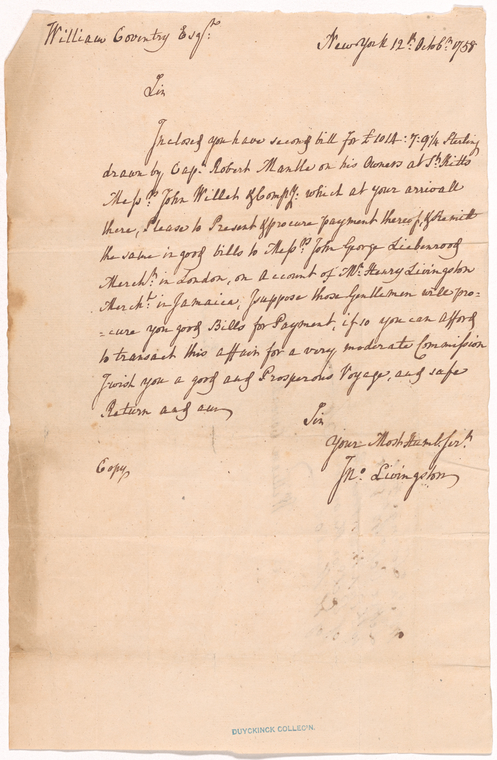 William Coventry Esqr.
New York 12th. Octobr. 1758
Sir
Inclosed you have second bill for £1014:7:9¼ Sterling
drawn by Capt. Robert Mantle on his Owners at St. Kitts
Messrs. John Willet & Compy. which at your arrivall
there, Please to Present & procure payment thereof, & Remitt
the same in good bills to Messrs. John George Liebenrood
Mercht. in London, on account of Mr. Henry Livingston
Mercht. in Jamaica, I suppose those Gentlemen will pro=
=cure you good Bills for Payment, if so you can afford
to transact this affair for a very moderate Commission
I wish you a good and Prosperous Voyage, and safe
Return and am
Sir
Your Most Humb. Servt.
Jno. Livingston
Copy
DUYCKINCK COLLEC'N.